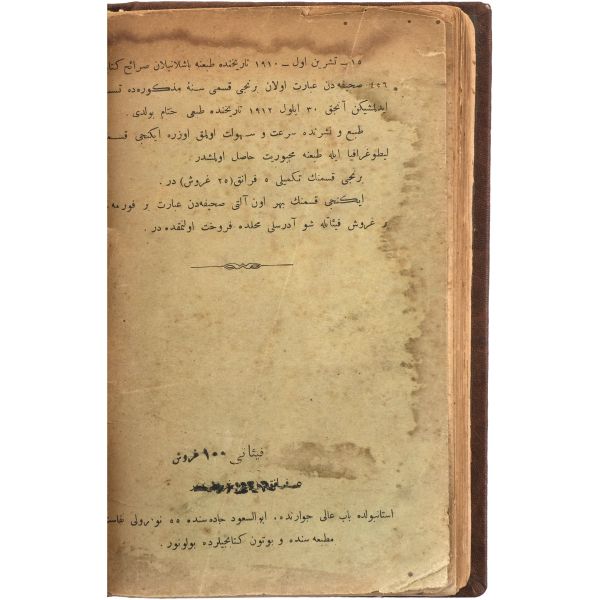 ١٥ – تشرین اول – ١٩١٠ تاریخنده طبعنه باشلانیلان صرائح کتا
٤٣٦ صحیفه‌دن عبارت اولان برنجی قسمی سنهٔ مذکوره‌ده تسـ
ایدلمشیکن آنجق ٣٠ ایلول ١٩١٢ تاریخنده طبعی ختام بولدی .
طبع و نشرنده سرعت و سهولت اولمق اوزره ایکنجی قسمـ
لیطوغرافیا ایله طبعنه مجبوریت حاصل اولمشدر .
برنجی قسمنك تکمیلی ٥ فرانق (٢٥ غروش) در .
ایکنجی قسمنك بهر اون آلتی صحیفه‌دن عبارت بر فورمه
غروش فیئاتله شو آدرسلی محلده فروخت اولنمقده در .
فیئاتی ١٠٠ غروش
استانبولده باب عالی جوارنده ، ابوالسعود جاده سنده ٥٥ نومرولی نفاست
مطبعه سنده و بوتون کتابجیلرده بولونور .